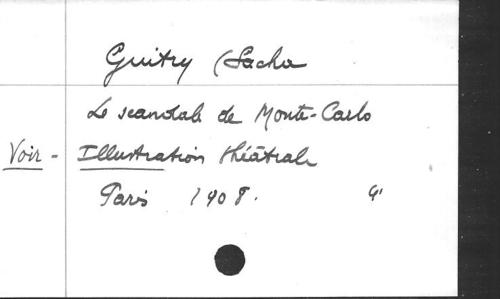 Guitry (Sacha
Le scandale de Monte-Carlo
Voir - Illustration théâtrale
Paris 1908. 4°